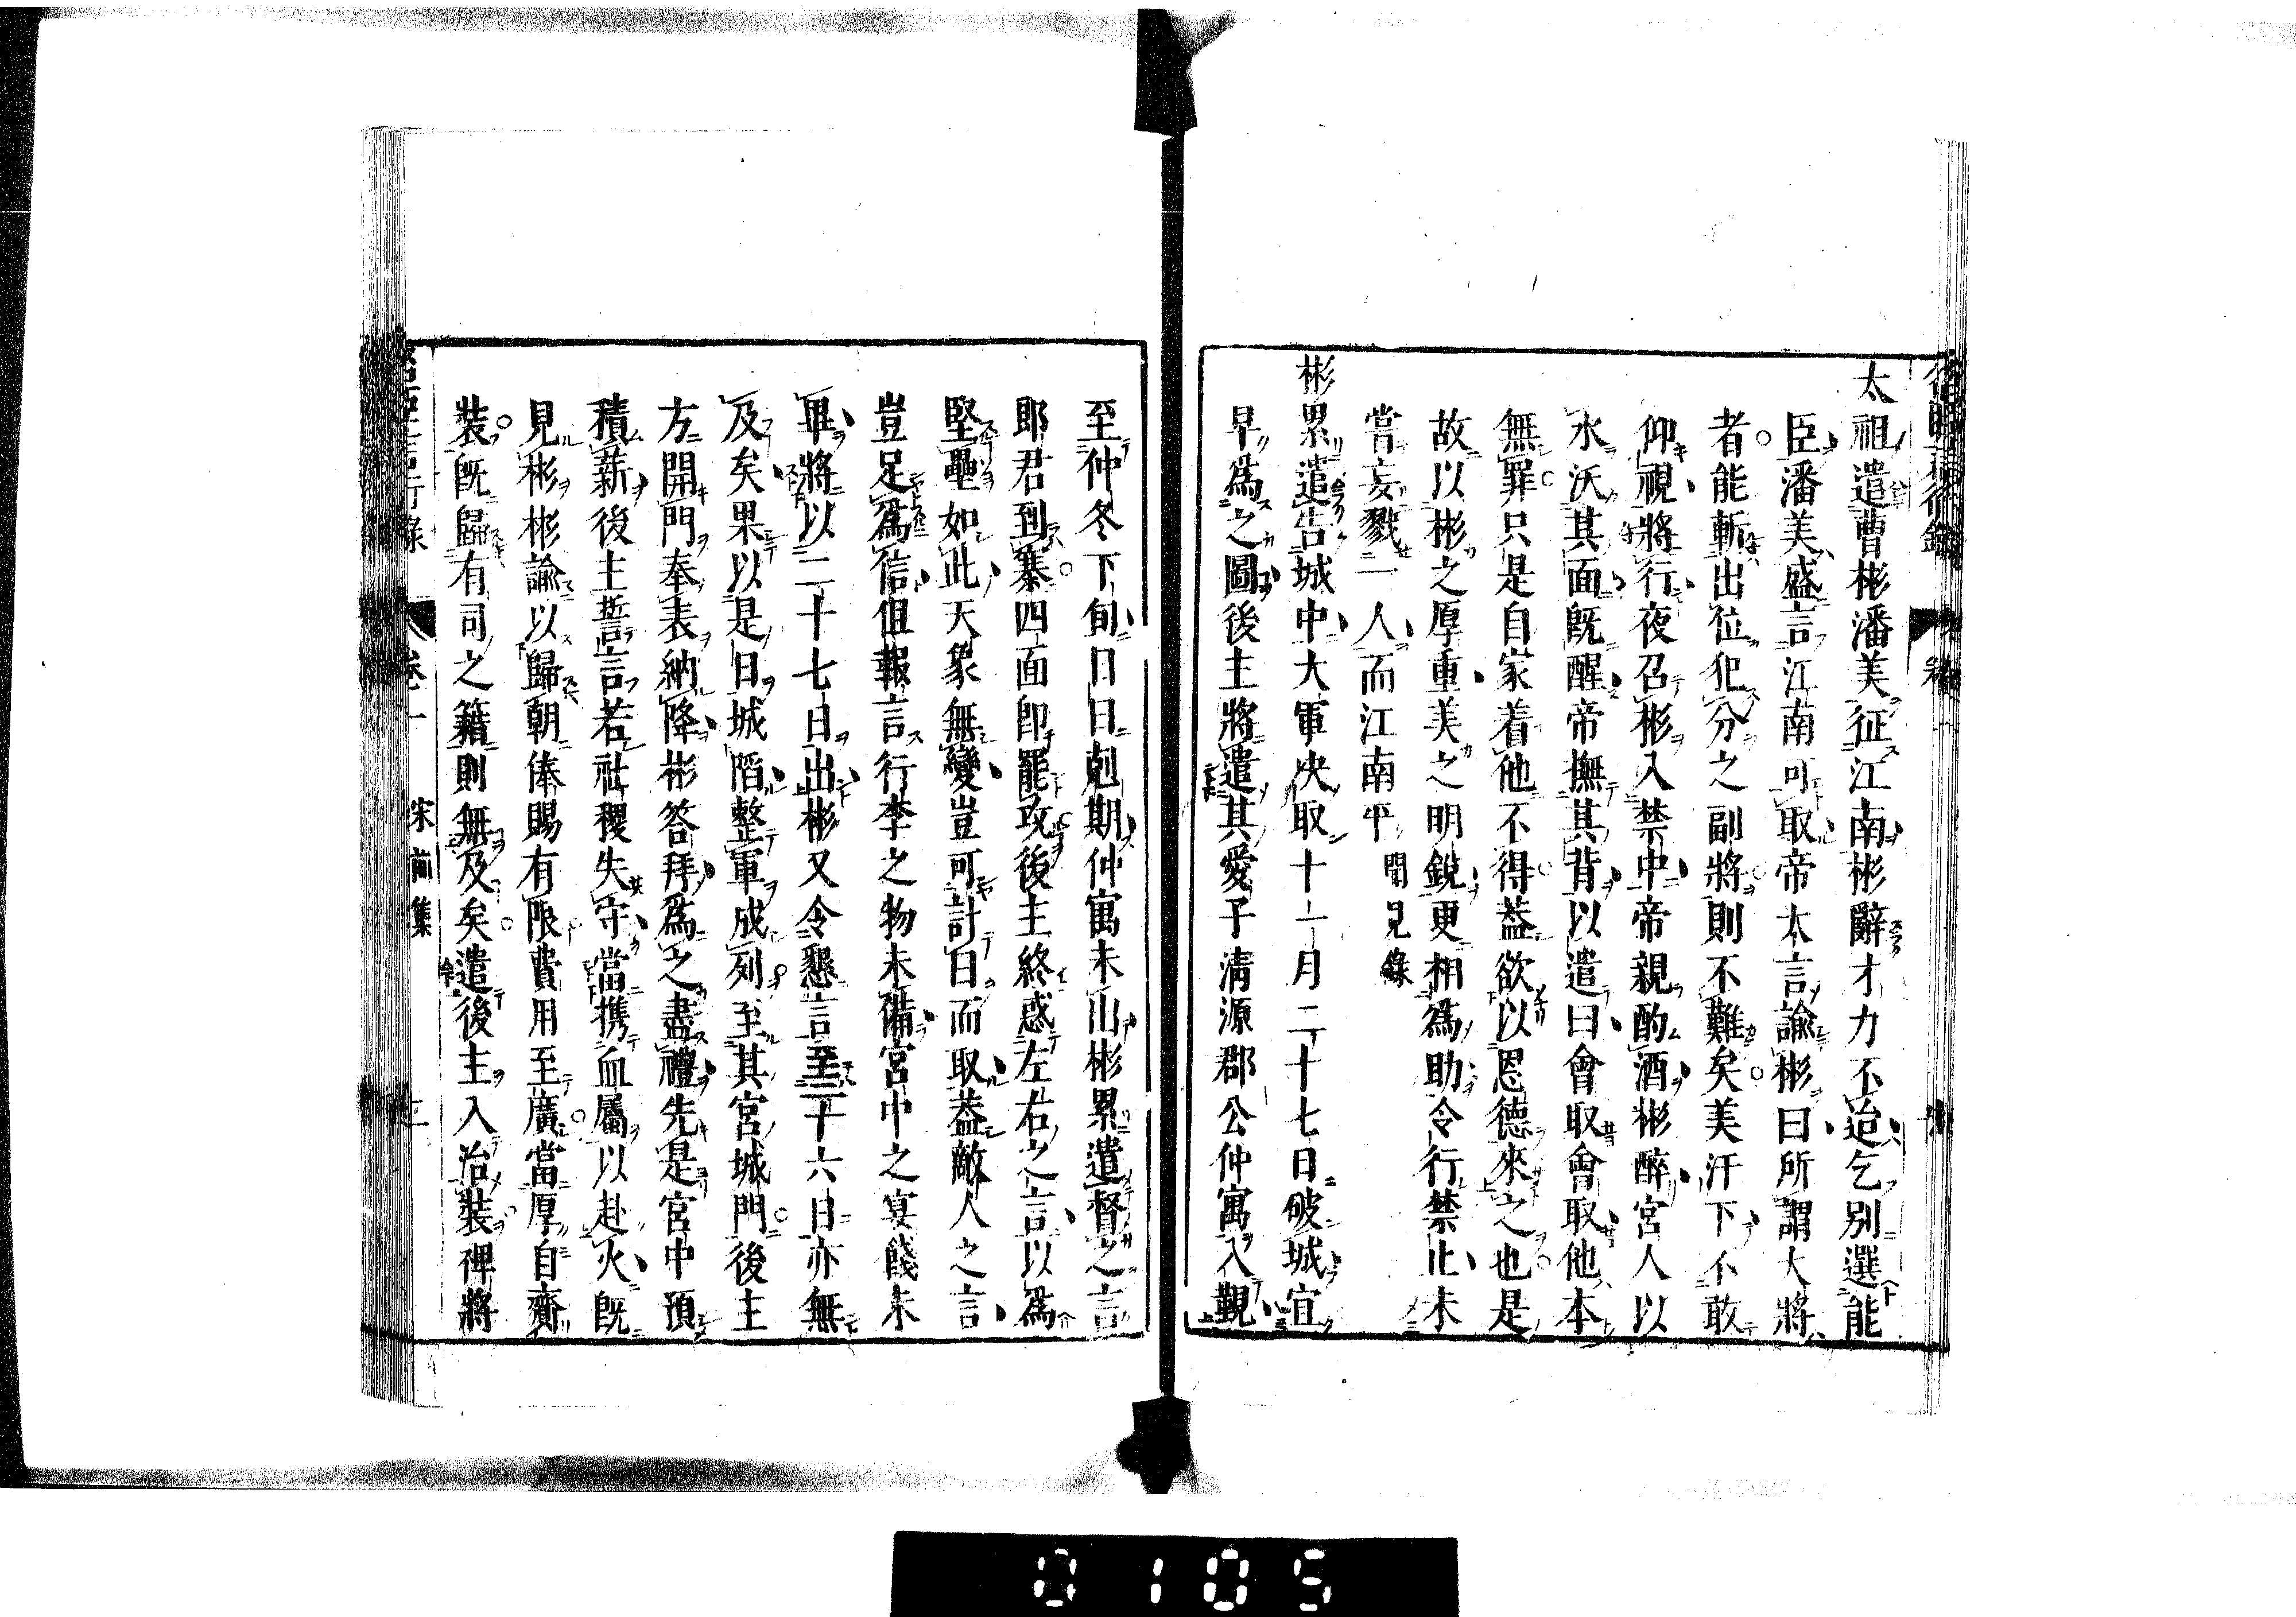 太祖遣曹彬潘美征江南彬辭才力不迨乞別選能
臣潘美盛言江南可取帝太言諭彬曰所謂大將
者能斬出位犯分之副將則不難矣美汗下不敢
仰視將行夜召彬入禁中帝親酌酒彬醉宮人以
水沃其面既醒帝撫其背以遣曰會取會取他本
無罪只是自家着他不得蓋欲以恩德來之也是
故以彬之厚重美之明銳更相爲助令行禁止未
嘗妄戮一人而江南平 聞見錄
彬累遣告城中大軍决取十一月二十七日破城宜
早爲之圖後主將遣其愛子清源郡公仲寓入覲
至仲冬下旬日日剋期仲寓未出彬累遣督之言
郎君到寨四面即罷攻後主終惑左右之言以爲
堅壘如此天象無變豈可計日而取蓋敵人之言
豈足爲信但報言行李之物未備宮中之宴餞未
畢將以二十七日出彬又令懇言至二十六日亦無
及矣果以是日城陷整軍成列至其宮城門後主
方開門奉表納降彬答拜爲之盡禮先是宮中預
積薪後主誓言若社稷失守當携血屬以赴火既
見彬彬諭以歸朝俸賜有限費用至廣當厚自齎
裝既歸有司之籍則無及矣遣後主入治裝裨將
行錄 卷一 宋前集 二